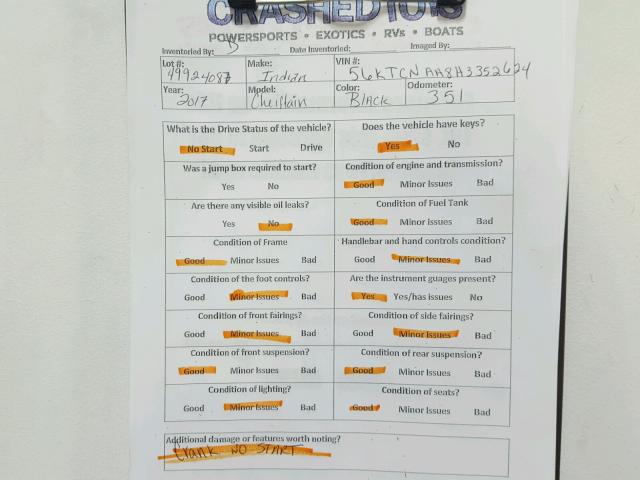 CRASHEDTOYS
POWERSPORTS • EXOTICS • RVs • BOATS
Inventoried By: Date Inventoried: Imaged By:
Lot #: Make: VIN #:
49924087 Indian 56KTCNAA8H3352624
Year: Model: Color: Odometer:
2017 Cheiftain Black 351
What is the Drive Status of the vehicle? Does the vehicle have keys?
No Start Start Drive Yes No
Was a jump box required to start? Condition of engine and transmission?
Yes No Good Minor Issues Bad
Are there any visible oil leaks? Condition of Fuel Tank
Yes No Good Minor Issues Bad
Condition of Frame Handlebar and hand controls condition?
Good Minor Issues Bad Good Minor Issues Bad
Condition of the foot controls? Are the instrument guages present?
Good Minor Issues Bad Yes Yes/has issues No
Condition of front fairings? Condition of side fairings?
Good Minor Issues Bad Good Minor Issues Bad
Condition of front suspension? Condition of rear suspension?
Good Minor Issues Bad Good Minor Issues Bad
Condition of lighting? Condition of seats?
Good Minor Issues Bad Good Minor Issues Bad
Additional damage or features worth noting?
Crank NO START